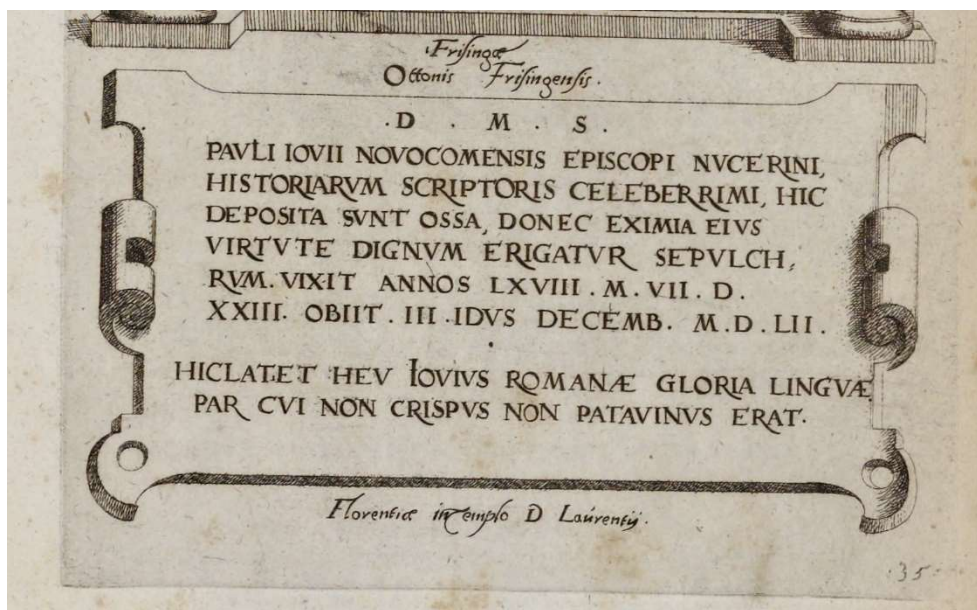 Frisingæ
Ottonis Frisingensis.
.D . M . S .
PAVLI IOVII NOVOCOMENSIS EPISCOPI NVCERINI,
HISTORIARVM SCRIPTORIS CELEBERRIMI, HIC
DEPOSITA SVNT OSSA, DONEC EXIMIA EIVS
VIRTVTE DIGNVM ERIGATVR SEPVLCH,
RVM. VIXIT ANNOS LXVIII . M . VII . D .
XXIII. OBIIT . III . IDVS DECEMB. M . D . LII .
HICLATET HEV IOVIVS ROMANÆ GLORIA LINGVÆ
PAR CVI NON CRISPVS NON PATAVINVS ERAT.
Florentiæ in Templo D Laurentij.
.35.